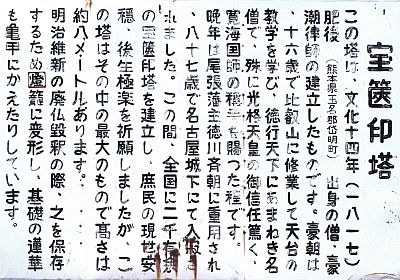 宝篋印塔
この塔は、文化十四年(一八一七)
肥後(熊本県玉名郡岱明町)出身の僧、豪
潮律師の建立したものです。豪潮は
、十六歳で比叡山に修業して天台の
教学を学び、徳行天下にあまねき名
僧で、殊に光格天皇の御信任篤く、
寛海国師の称号を賜った程です。
晩年は尾張藩主徳川斉朝に重用され
、八十七歳で名古屋城下にて入寂さ
れました。この間、全国に二千有余
の宝篋印塔を建立し、庶民の現世安
穏、後生極楽を祈願しましたが、こ
の塔はその中の最大のもので高さは
約八メートルあります。
明治維新の廃仏毀釈の際、之を保存
するため燈籠に変形し、基礎の蓮華
も亀甲にかえたりしています。